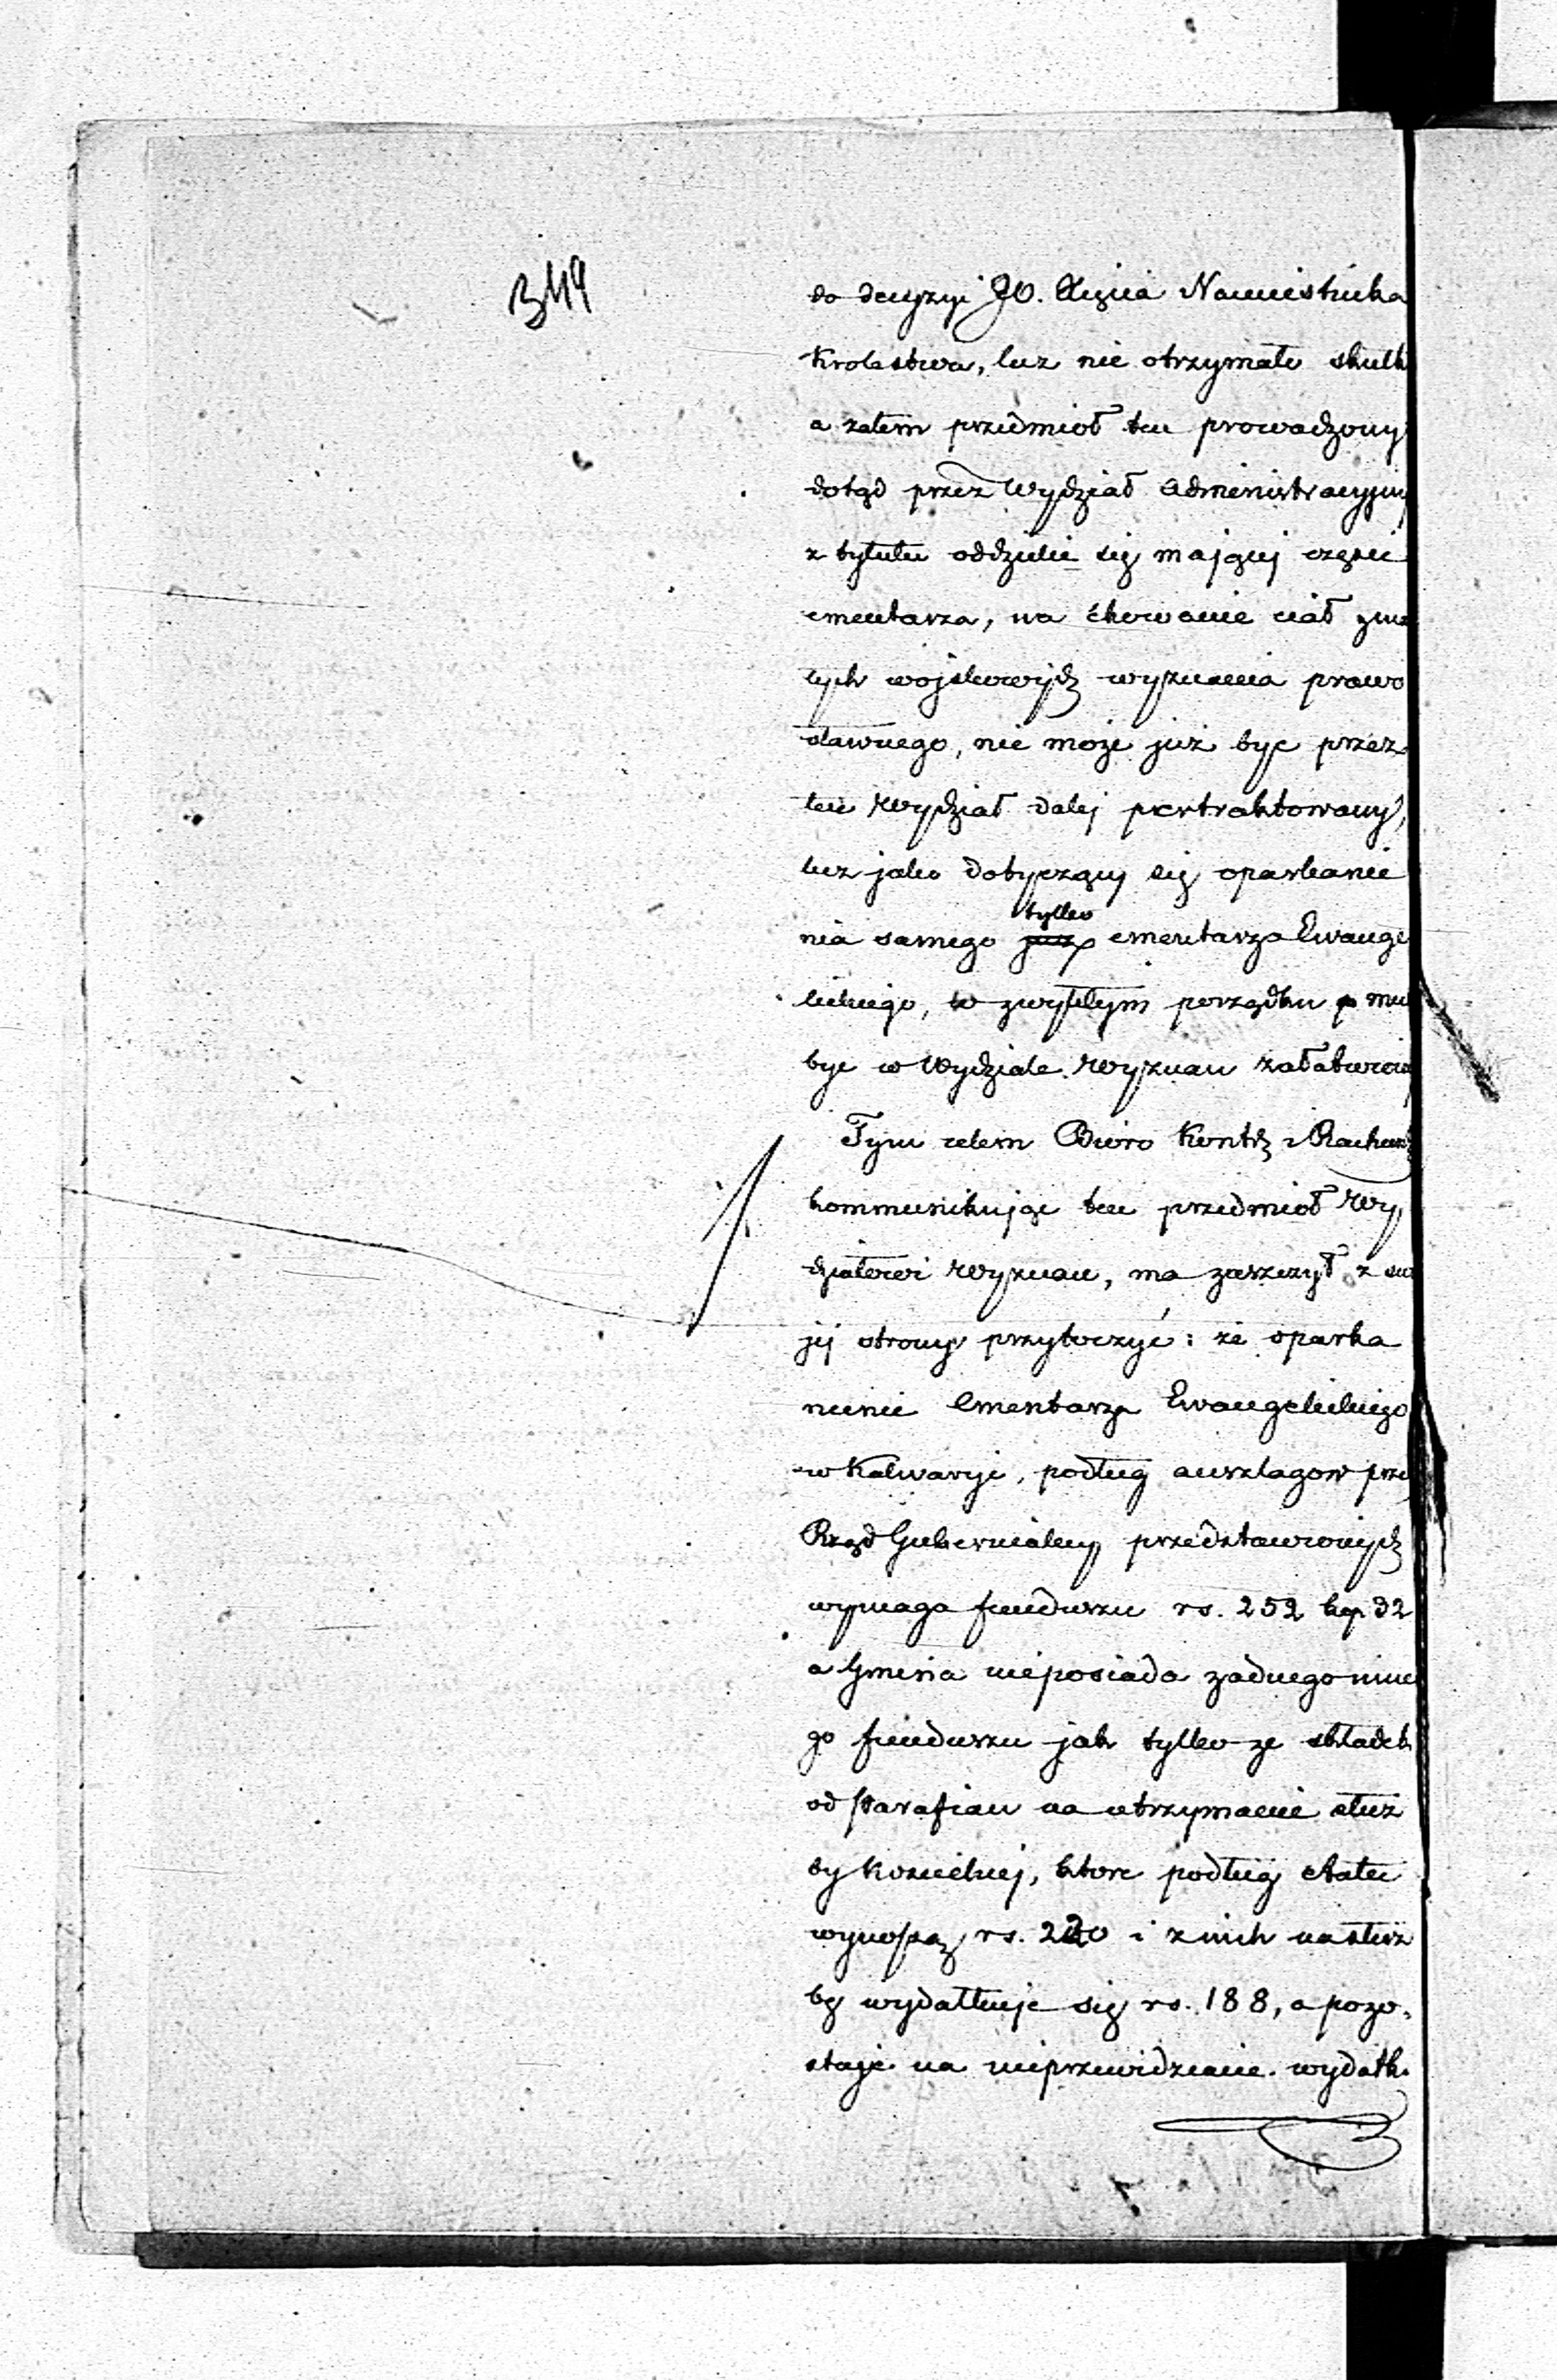 349
do decyzyi JO. Xięcia Namiestnika
Krolestwa, lecz nie otrzymało skutk
a zatem przedmiot ten prowadzony
dotąd przez Wydział Administracyjny
z tytułu oddzielić się mającej części
cmentarza, na chowanie ciał zmar
łych wojskowych wyznania prawo
sławnego, nie może już byc przez
ten Wydział dalej pertraktowany,
lecz jako dotyczący się oparkanie
nia samego tylko cmentarza Ewange
lickiego, w zwykłym porządku
byc w Wydziale Wyznan załatwion
Tym celem Biuro Kontr i Rachun
kommunikując ten przedmiot Wy,
działowi Wyznan, ma zaszczyt z swo
jej strony przytoczyć: że oparka
nienie Cmentarza Ewangelickiego
w Kalwaryi, podług anszlagow prze
Rząd Gubernialny przedstawionych
wymaga funduszu rs. 252 kop 32
a Gmina nieposiada żadnego inne
go funduszu jak tylko ze składek
od Parafian na utrzymanie służ
by Koscielnej, ktore podług etatu
wynoszą rs. 220 i z nich na służ
bę wydatkuje się rs. 188, a pozo,
staje na nieprzewidziane wydatk